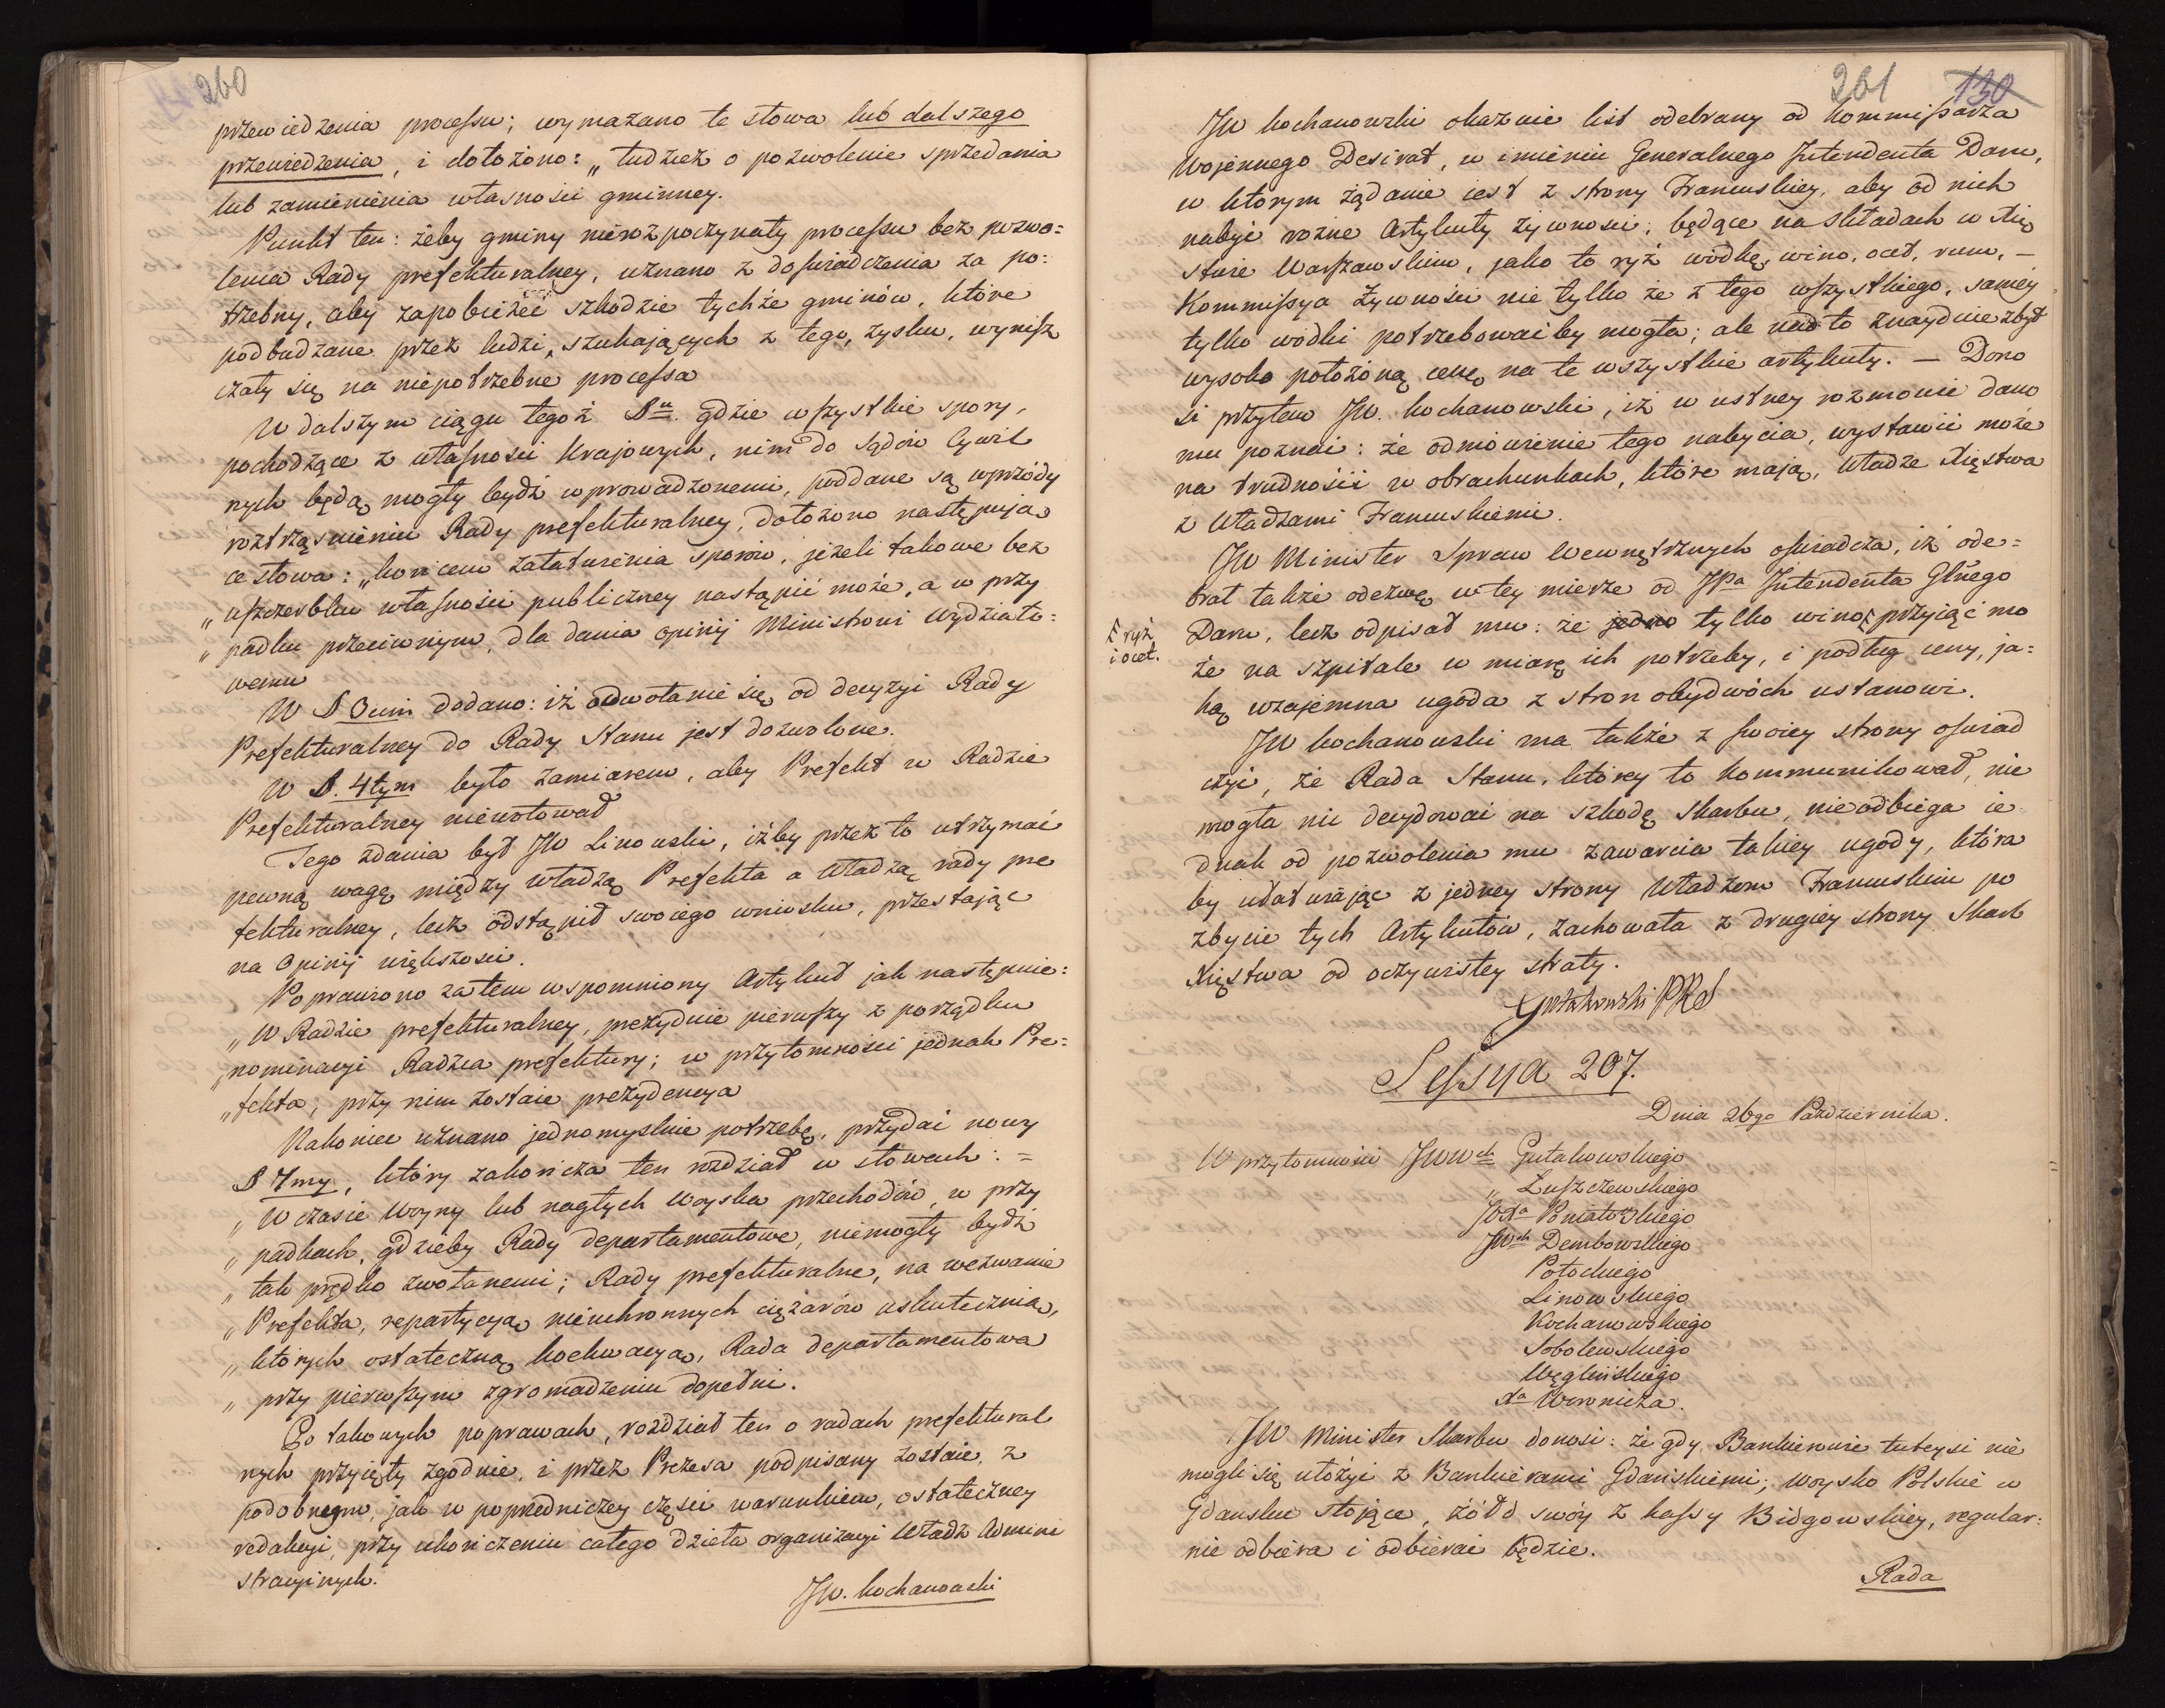 260
przewiedzenia processu; wymazano te słowa lub dalszego
przewiedzenia, i dołożono: „tudzież o pozwolenie sprzedania
lub zamienienia własności gminney.
Punkt ten: żeby gminy nierozpoczynały processu bez pozwo=
lenia Rady prefekturalney, uznano z doświadczenia za po=
trzebny, aby zapobieżeć szkodzie tychże gminów, które
podbudzane przez ludzi, szukających z tego, zysku, wynisz
czały się na niepotrzebne processa
W dalszym ciągu tegoż §u. gdzie wszystkie spory,
pochodzące z własności Krajowych, nim do Sądów Cywil
nych będą mogły bydź wprowadzonemi, poddane są wprzódy
roztrząśnieniu Rady prefekturalney, dołożono następują
ce słowa: „końcem załatwienia sporów, jeżeli takowe bez
„uszczerbku własności publiczney nastąpić może, a w przy
„padku przeciwnym, dla dania opinij Ministrowi Wydziało=
wemu
W § 3cim dodano: iż odwołanie się od decyzyi Rady
Prefekturalney do Rady Stanu jest dozwolone.
W §. 4tym było zamiarem, aby Prefekt w Radzie
Prefekturalney niewotował
Tego zdania był JW Linowski, iżby przez to utrzymać
pewną wagę między władzą Prefekta a Władzą rady pre
fekturalney, lecz odstąpił swoiego wniosku, przestając
na Opinij większości.
Poprawiono zatem wspomniony Artykuł jak następuie:
„W Radzie prefekturalney, prezyduie pierwszy z porządku
„nominacyi Radzca prefektury; w przytomności jednak Pre=
„fekta, przy nim zostaie prezydencya
Nakoniec uznano jednomyślnie potrzebę, przydać nowy
§ 7my, który zakończa ten rozdział w słowach: =
„W czasie Woyny lub nagłych Woyska przechodów, w przy
„padkach, gdzieby Rady departamentowe, niemogły bydź
„tak prędko zwołanemi; Rady prefekturalne, na wezwanie
„Prefekta, repartycyą nieuchronnych ciężarów uskutecznią,
„których ostateczną koekwacyą, Rada departamentowa
„przy pierwszym zgromadzeniu dopełni.
Po takowych poprawach, rozdział ten o radach prefektural
nych przyięty zgodnie, i przez Prezesa podpisany zostaie, z
podobnym, jak w poprzedniczey części warunkiem, ostateczney
redakcyi, przy ukończeniu całego dzieła organizacyi Władz Admini
stracyinych.
JW. Kochanowski
261 130
JW Kochanowski okazuie list odebrany od Kommissarza
Wojennego Desirat, w imieniu Generalnego Intendenta Daru,
w którym żądanie iest z strony Francuskiey, aby od nich
nabyć rożne Artykuły żywności, będące na Składach w Xię
stwie Warszawskim, jako to ryż wódkę, wino, ocet, rum, —
Kommissya Żywności nie tylko że z tego wszystkiego, samey
tylko wódki potrzebowaćby mogła; ale nad to znayduie zbyt
wysoko położoną cenę na te wszystkie artykuły. — Dono
si przytem JW. Kochanowski, iż w ustney rozmowie dano
mu poznać: że odmówienie tego nabycia, wystawić może
na trudności w obrachunkach, które mają, Władze Xięstwa
z Władzami Francuskiemi.
JW Minister Spraw Wewnętrznych oświadcza, iż ode=
brał także odezwę w tey mierze od JPa Intendenta Głnego
Daru, lecz odpisał mu: że jedno tylko wino przyiąć mo
ryż
i ocet.
że na szpitale w miarę ich potrzeby, i podług ceny, ja=
ką wzajemna ugoda z stron obydwóch ustanowi.
JW Kochanowski ma także z swoiey strony oświad
czyć, że Rada Stanu, którey to kommunikował, nie
mogła nic decydować na szkodę Skarbu, nieodbiega ie
dnak od pozwolenia mu zawarcia takiey ugody, która
by ułatwiając z jedney strony Władzom Francuskim po
zbycie tych Artykułów, zachowała z drugiey strony Skarb
Xięstwa od oczywistey straty.
Gutakowski PRS
Sessya 207.
Dnia 26go Października.
W przytomności JWWch Gutakowskiego
„ Łuszczewskiego
JOXa Poniatowskiego
JWch Dembowskiego
Potockiego
Linowskiego
Kochanowskiego
Sobolewskiego
Węglińskiego
Xa Woronicza.
JW Minister Skarbu donosi: że gdy Bankierowie tuteysi nie
mogli się ułożyć z Bankierami Gdańskiemi; Woysko Polskie w
Gdansku stojące, żołd swóy z kassy Bidgowskiey, regular=
nie odbiera i odbierać będzie.
Rada